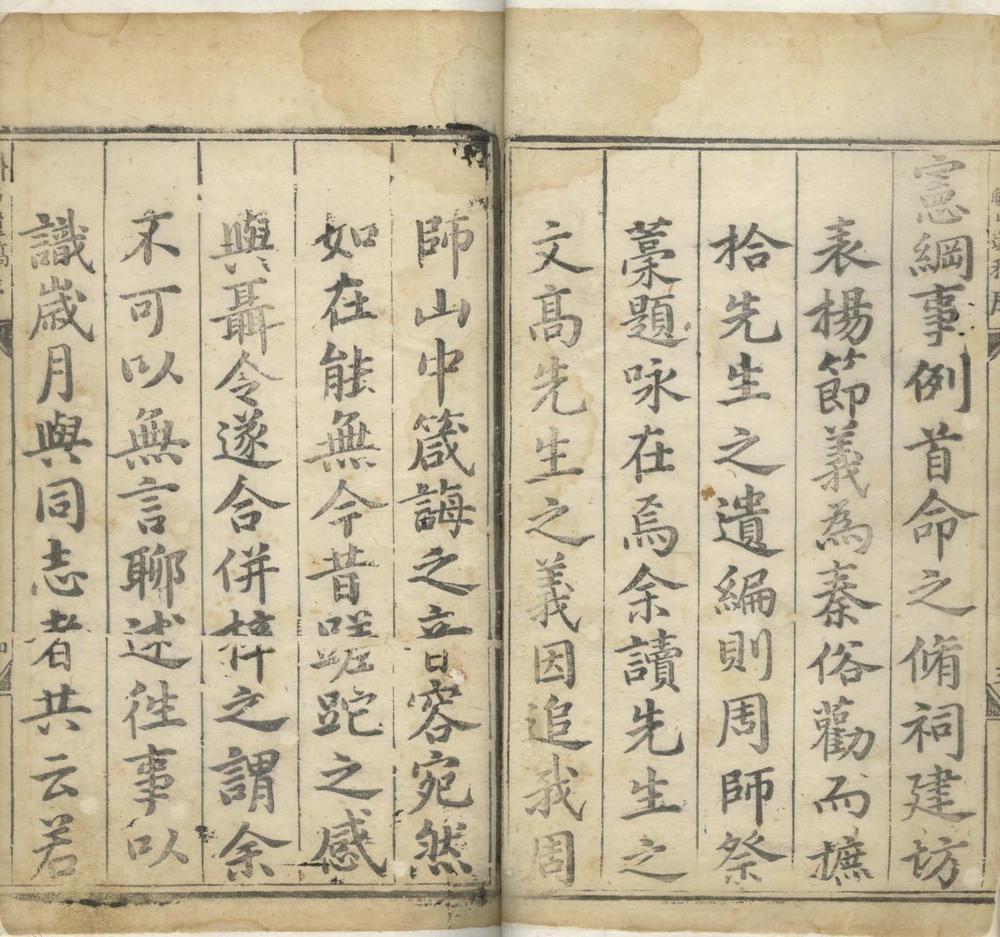 憲綱事例首命之脩祠建坊
表楊節義為秦俗勸而摭
拾先生之遺編則周師祭
藳題咏在焉余讀先生之
文高先生之義因追我周
師山中箴誨之音容宛然
如在能無今昔蹉跎之感
與聶令遂合併梓之謂余
不可以無言聊述徃事以
識歲月與同志者共云若